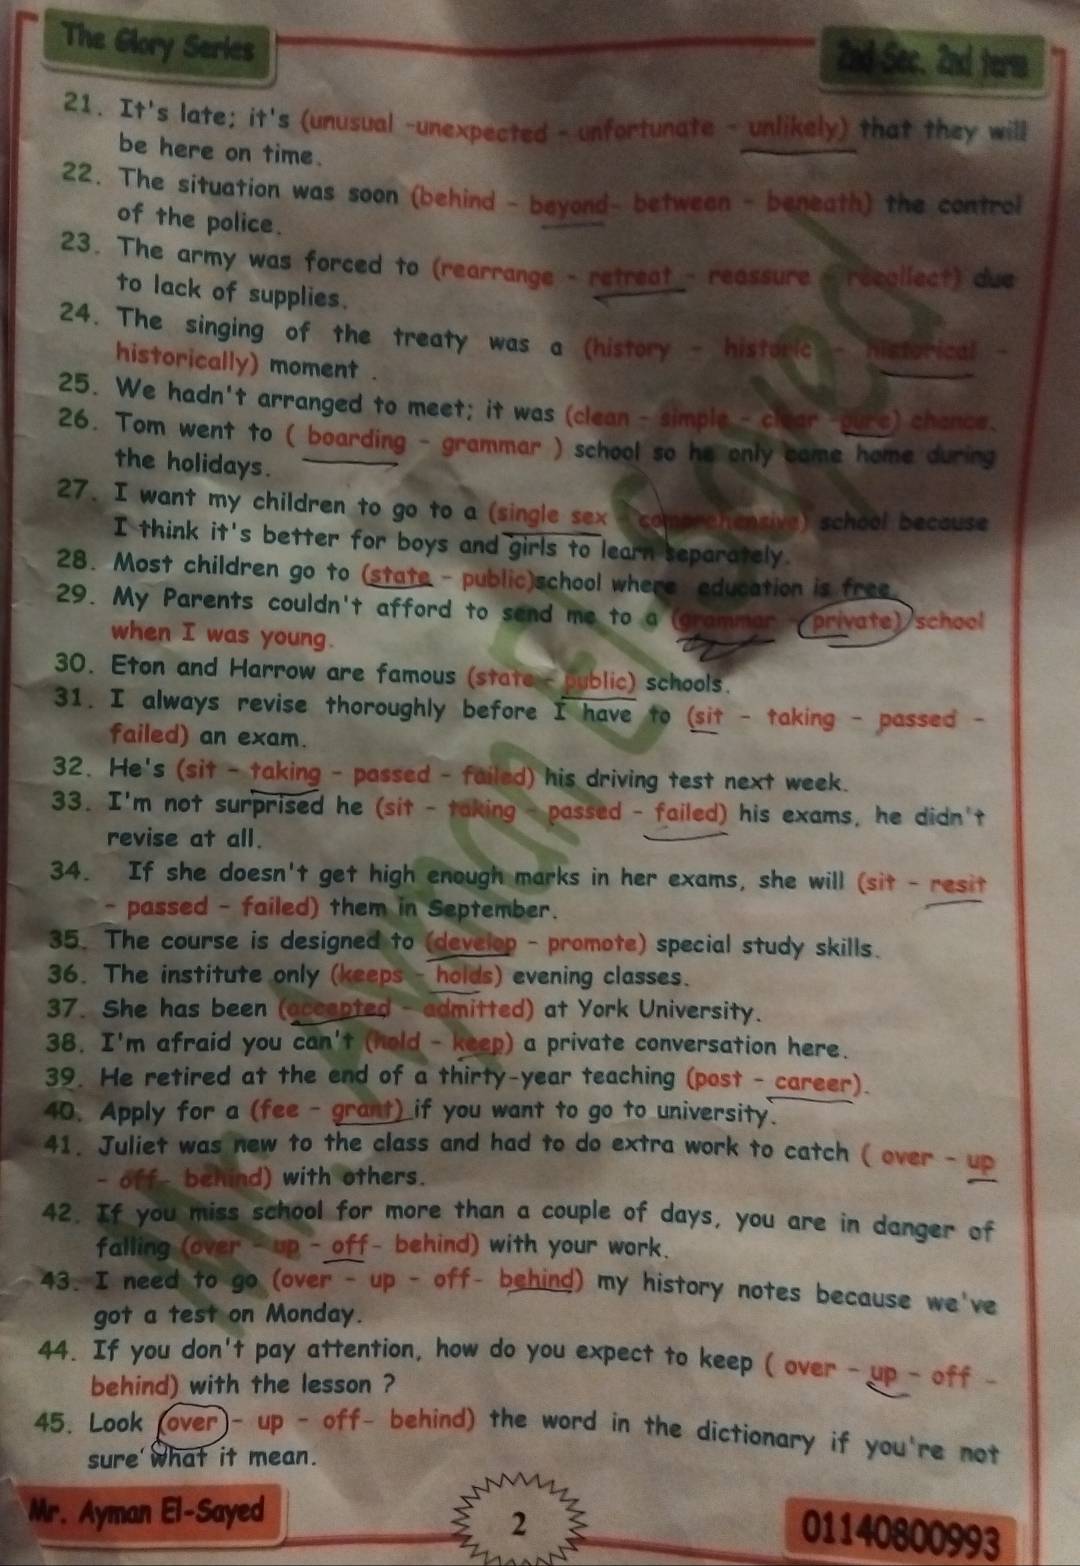 The Glory Series
2nd Sec. 2nd term
21. It's late; it's (unusual -unexpected - unfortunate - unlikely) that they will
be here on time.
22. The situation was soon (behind - beyond- between - beneath) the control
of the police.
23. The army was forced to (rearrange - retreat - reassure - recollect) due
to lack of supplies.
24. The singing of the treaty was a (history - historic - historical -
historically) moment .
25. We hadn't arranged to meet; it was (clean - simple - clear -pure) chance.
26. Tom went to ( boarding - grammar ) school so he only came home during
the holidays.
27. I want my children to go to a (single sex - comprehensive) school because
I think it's better for boys and girls to learn separately.
28. Most children go to (state - public)school where education is free.
29. My Parents couldn't afford to send me to a (grammar - private) school
when I was young.
30. Eton and Harrow are famous (state - public) schools.
31. I always revise thoroughly before I have to (sit - taking - passed -
failed) an exam.
32. He's (sit - taking - passed - failed) his driving test next week.
33. I'm not surprised he (sit - taking - passed - failed) his exams, he didn't
revise at all.
34. If she doesn't get high enough marks in her exams, she will (sit - resit
- passed - failed) them in September.
35. The course is designed to (develop - promote) special study skills.
36. The institute only (keeps - holds) evening classes.
37. She has been (accepted - admitted) at York University.
38. I'm afraid you can't (hold - keep) a private conversation here.
39. He retired at the end of a thirty-year teaching (post - career).
40. Apply for a (fee - grant) if you want to go to university.
41. Juliet was new to the class and had to do extra work to catch ( over - up
- off- behind) with others.
42. If you miss school for more than a couple of days, you are in danger of
falling (over - up - off- behind) with your work.
43. I need to go (over - up - off- behind) my history notes because we've
got a test on Monday.
44. If you don't pay attention, how do you expect to keep ( over - up - off -
behind) with the lesson ?
45. Look (over - up - off- behind) the word in the dictionary if you're not
sure what it mean.
Mr. Ayman El-Sayed
Mr. Ayman El-Sayed
2
01140800993